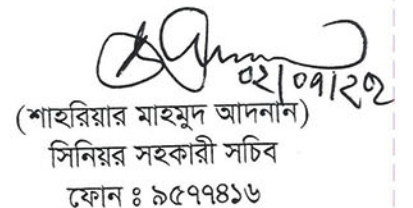 ০২/০৭/২০
(শাহরিয়ার মাহমুদ আদনান)
সিনিয়র সহকারী সচিব
ফোন ঃ ৯৫৭৭৪১৬